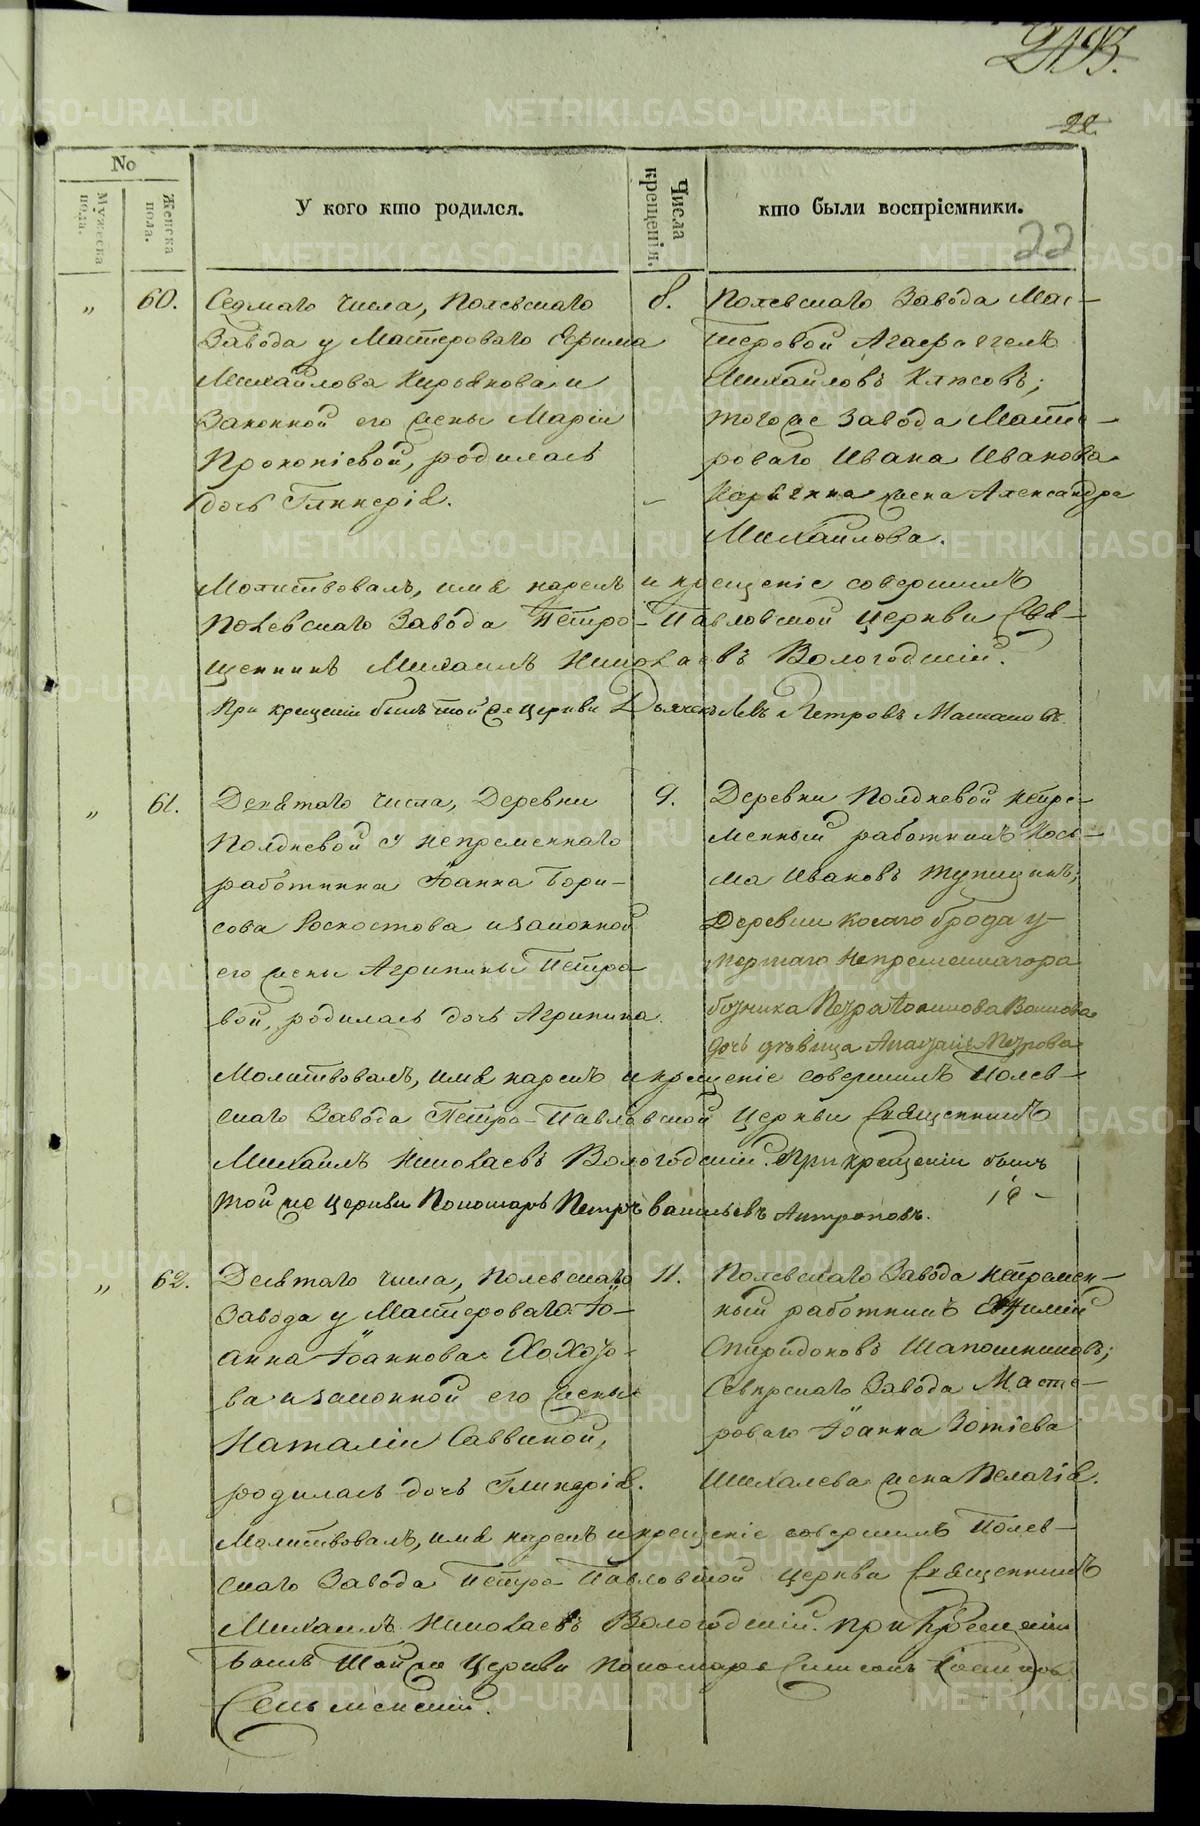 22.
No
Мужеска пола.
Женска пола.
У кого кто родился.
Числа крещенія.
кто были воспріемники.
22
„ 60. Седмаго числа, Полевскаго
Завода у Мастероваго Ефима
Михайлова Кирьянова и
Законной его жены Маріи
Прокопіевой, родилась
дочь Гликерія.
8. Полевскаго Завода Мас-
теровой Агафаггелъ
Михайловъ Княжовъ;
тогоже Завода Масте-
роваго Ивана Иванова
жена Александра
Михайлова.
Молитвовалъ, имя нарекъ и крещеніе совершилъ
Полевскаго Завода Петро-Павловской Церкви Свя-
щенникъ Михаилъ Николаевъ Вологодскій.
При крещеніи былъ той же Церкви Дьячекъ Левъ Петровъ
„ 61. Девятаго числа, Деревни
Полдневой у непременнаго
работника Іоанна Бори-
сова и законной
его жены Агрипины Петро
вой, родилась дочь Агрипина.
9. Деревни Полдневой непре-
менный работникъ Козь-
ма Ивановъ Тупицинъ;
Деревни Косаго брода у-
мершаго Непременнагора
ботника Петра
дочь девица Петрова
Молитвовалъ, имя нарекъ и крещеніе совершилъ Полев-
скаго Завода Петро-Павловской Церкви Священникъ
Михаилъ Николаевъ Вологодскій. При крещеніи былъ
той же Церкви Пономарь Петръ Васильевъ Антроповъ.
„ 62. Девятаго числа, Полевскаго
Завода у Мастероваго Іо-
анна Іоаннова
ва и законной его жены
Наталіи Саввиной,
родилась дочь Гликерія.
11. Полевскаго Завода непремен-
ный работникъ
Спиридоновъ Шапошниковъ;
Северскаго Завода Масте-
роваго Іоанна Зотіева
Шихалева жена Пелагія.
Молитвовалъ, имя нарекъ и крещеніе совершилъ Полев-
скаго Завода Петро-Павловской Церкви Священникъ
Михаилъ Николаевъ Вологодскій. При Крещеніи
былъ Той же Церкви Пономарь Симеонъ
METRIKI.GASO-URAL.RU